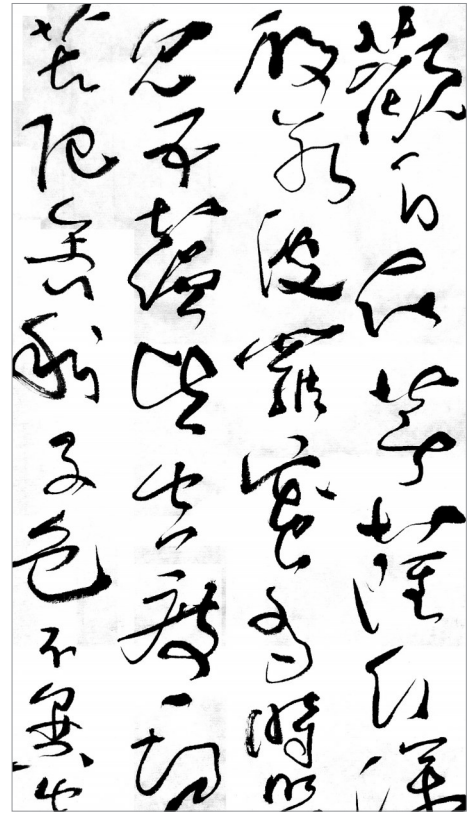 觀自在菩薩行深
般若波羅蜜多時照
見五蘊皆空度一切
苦厄舍利子色不異空